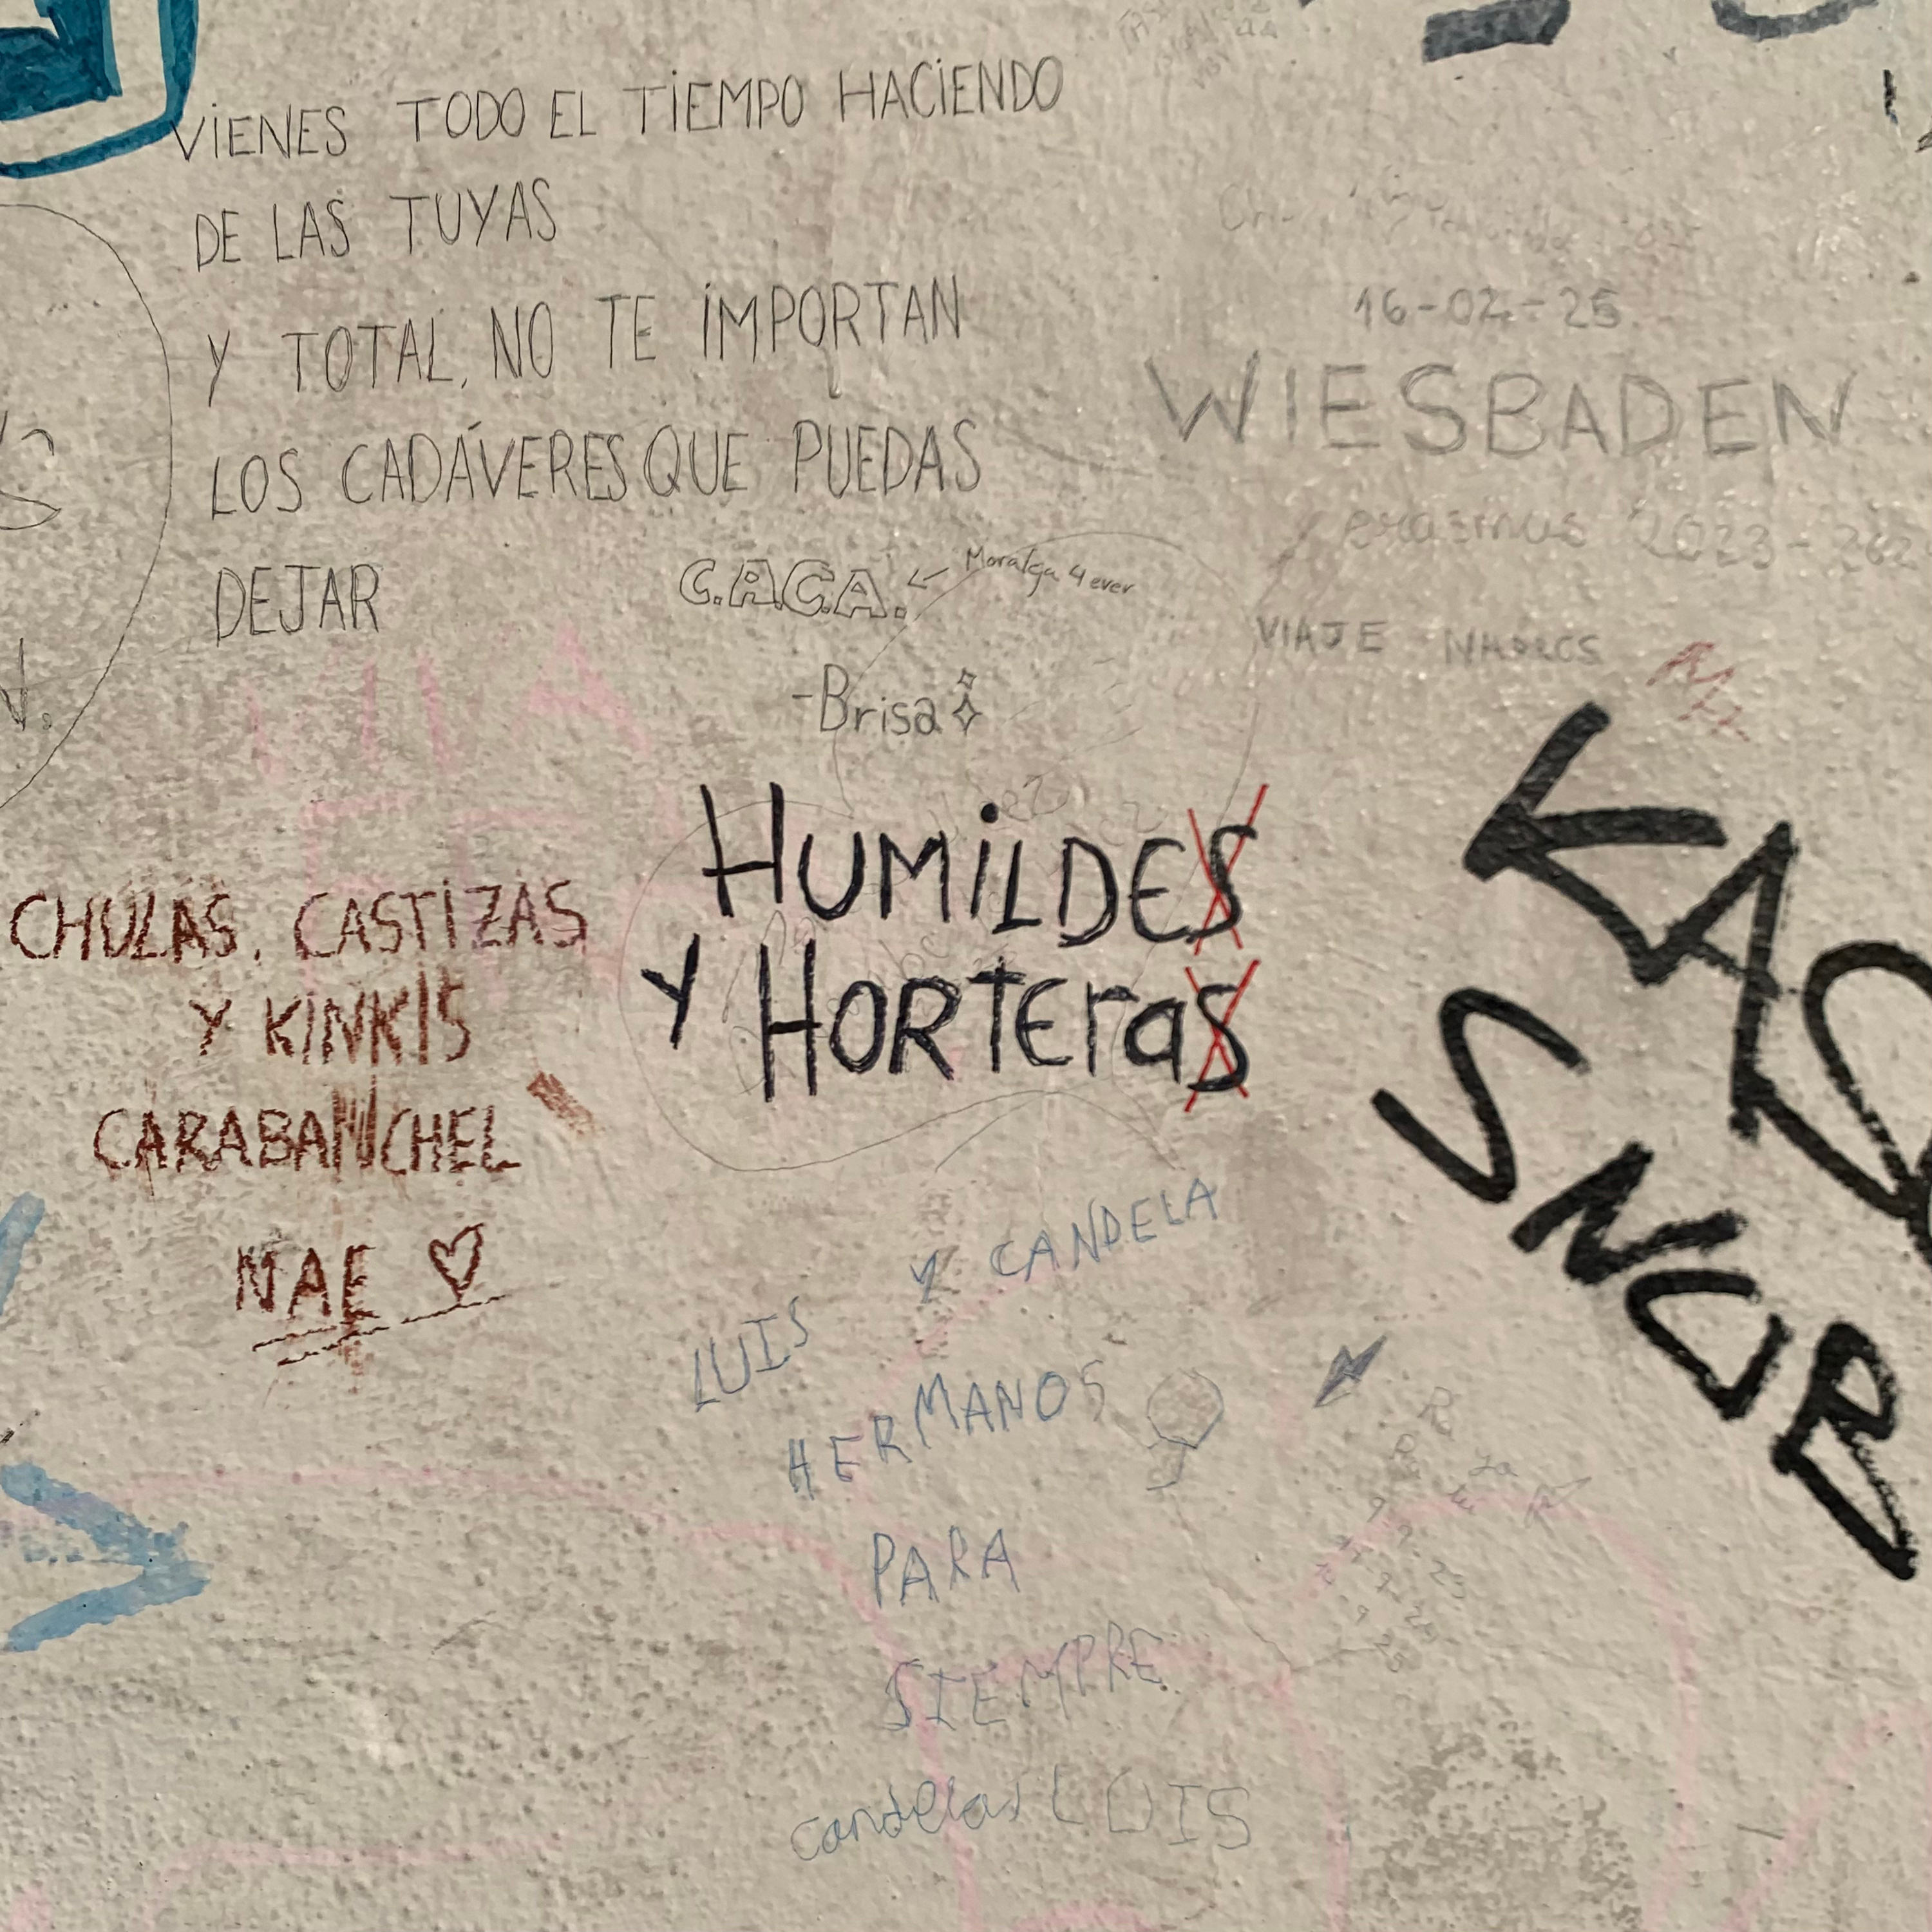 VIENES TODO EL TIEMPO HACIENDO
DE LAS TUYAS
Y TOTAL, NO TE IMPORTAN
LOS CADÁVERES QUE PUEDAS
DEJAR
C.A.C.A. ← Moralga 4 ever
-Brisa
16-02-25
WIESBADEN
erasmus 2023-
VIAJE
HUMILDES
Y HORTEraS
CHULAS, CASTIZAS
Y KINKIS
CARABANCHEL
NAE ♡
KAS
SNOB
LUIS Y CANDELA
HERMANOS
PARA
SIEMPRE
candela LUIS